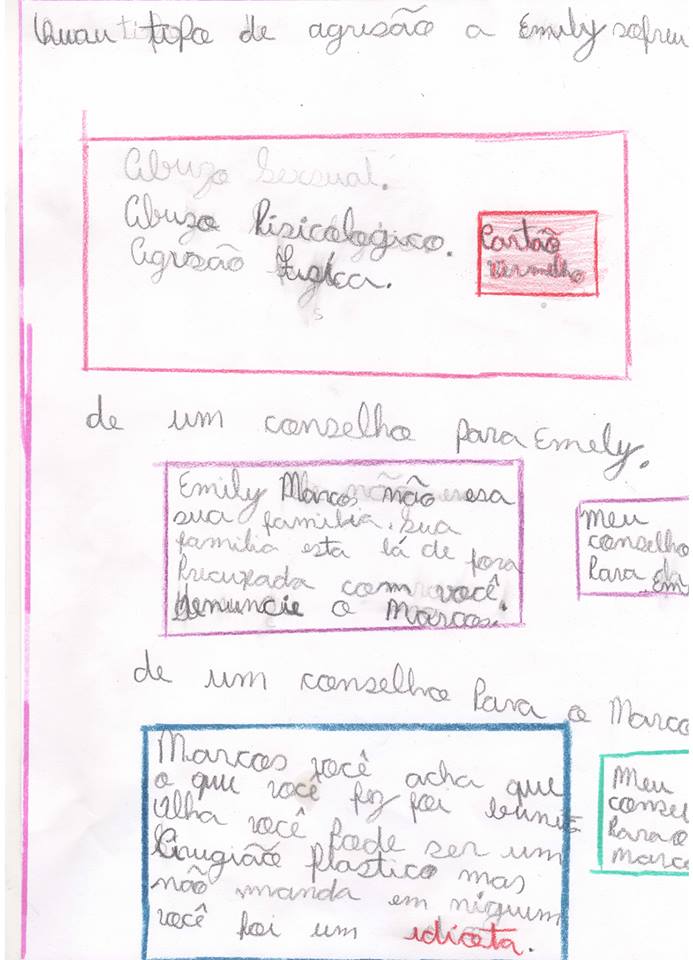 tipo de agrisão a Emily sofreu
Abuzo Sexsual.
Abuso Pisicologico.
Agrisão Fisica.
Cartão
vermelho
de um conselho para Emely.
Emily Marcos não era
sua familia. sua
familia esta lá de fora
Precupada com você.
denuncie o Marcos.
meu
conselho
Para Em
de um conselho Para o Marco
Marcos você acha que
o que você fez foi bunito
olha você pode ser um
Cirugião plastico mas
não manda em niguem
você foi um idicota.
Meu
consel
Para o
marco